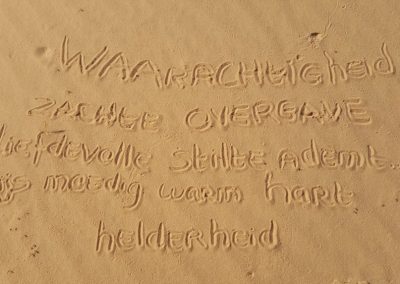 WAARACHtigheid
ZACHTE OVERGAVE
liefdevolle stilte Ademt..
is moedig warm hart
helderheid